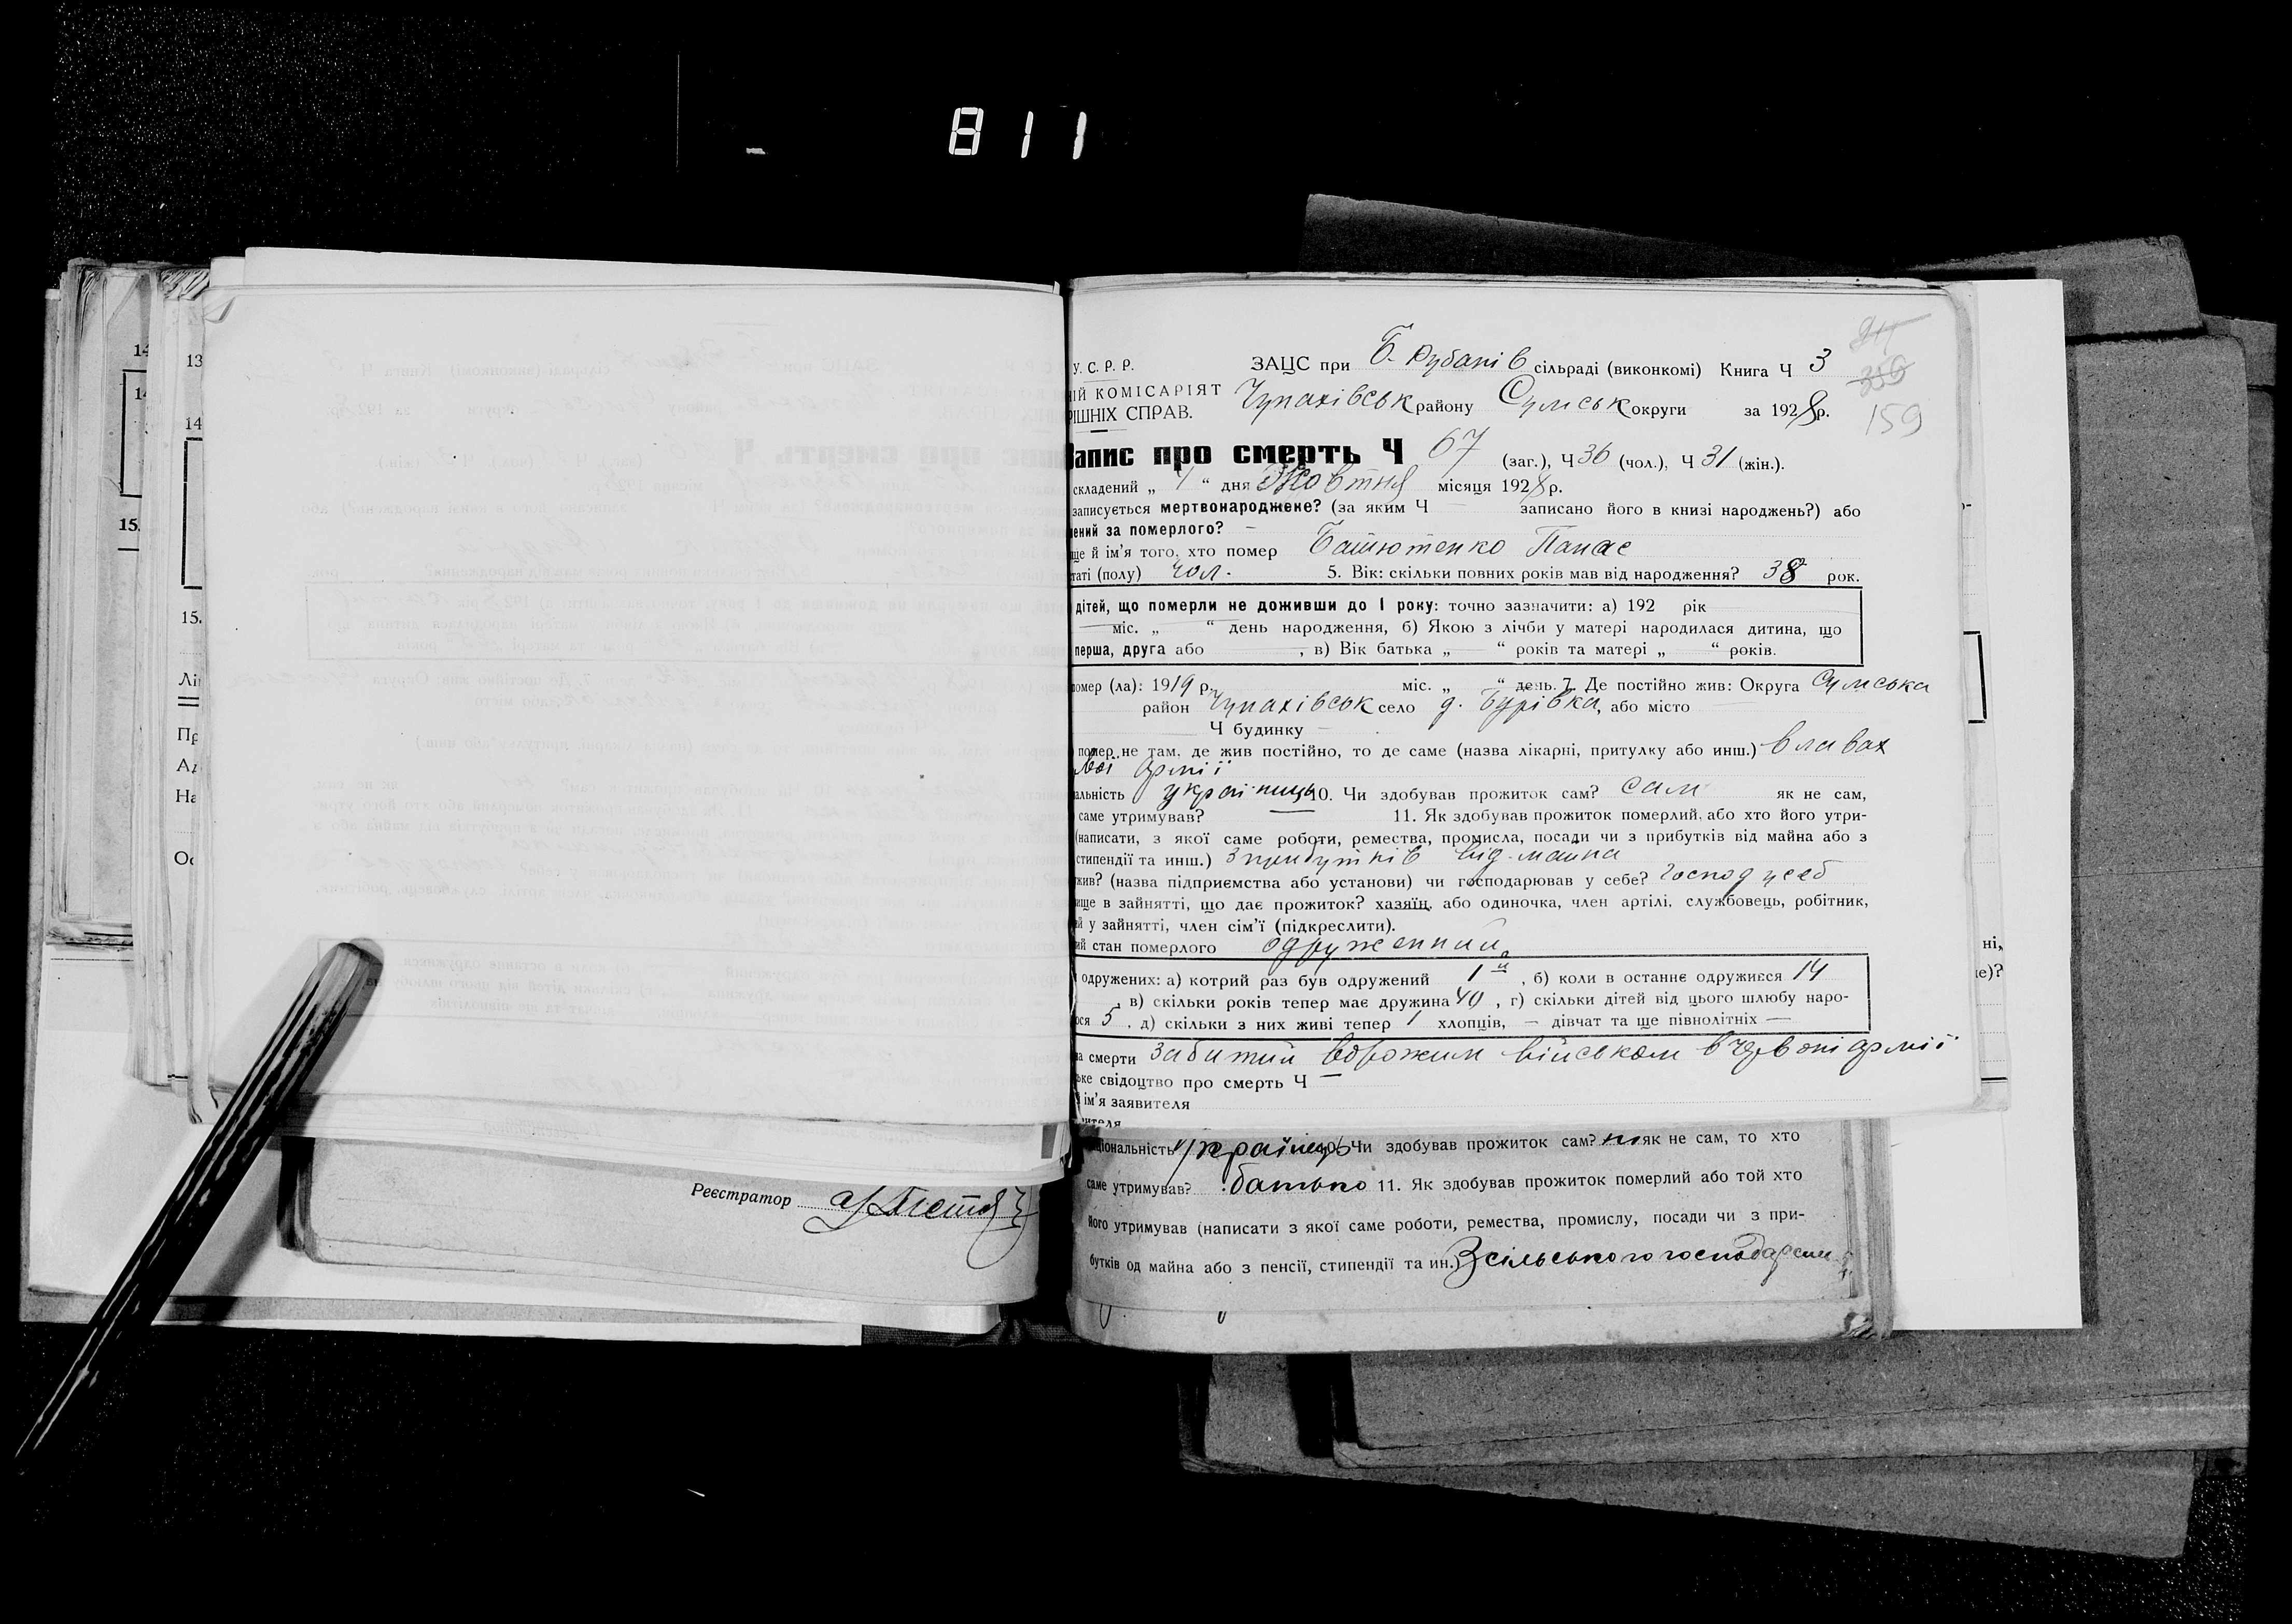 811
14
13
14
14
15.
15.
Лі
Пр
Ад
На
Ос
Реєстратор
У. С. Р. Р.
ЗАЦС при Б. Рубанів сільраді (виконкомі) Книга Ч 3
ІЙ КОМІСАРІЯТ
РІШНІХ СПРАВ.
Чупахівськ району Сумськ округи за 1928 р.
159
Запис про смерть Ч 67 (заг.), Ч 36 (чол.), Ч 31 (жін.).
складений „ 4 “ дня Жовтня місяця 1928 р.
записується мертвонароджене? (за яким Ч — записано його в книзі народжень?) або
ений за померлого? —
ще й ім'я того, хто помер Башютенко Панас
таті (полу) чол. 5. Вік: скільки повних років мав від народження? 38 рок.
дітей, що померли не доживши до 1 року: точно зазначити: а) 192 рік
міс. „ “ день народження, б) Якою з лічби у матері народилася дитина, що
перша, друга або , в) Вік батька „ — “ років та матері „ “ років.
помер (ла): 1919 р. міс. „ “ день. 7. Де постійно жив: Округа Сумська
район Чупахівськ село д. Бурівка, або місто
Ч будинку —
помер не там, де жив постійно, то де саме (назва лікарні, притулку або инш.) в лавах
армії
альність українець 10. Чи здобував прожиток сам? сам як не сам,
саме утримував? — 11. Як здобував прожиток померлий, або хто його утри-
(написати, з якої саме роботи, ремества, промисла, посади чи з прибутків від майна або з
стипендії та инш.) З прибутків від майна
жив? (назва підприємства або установи) чи господарював у себе? господ у себ
ище в зайнятті, що дає прожиток? хазяїн, або одиночка, член артілі, службовець, робітник,
ий у зайнятті, член сім'ї (підкреслити).
ий стан померлого одруженний
одружених: а) котрий раз був одружений 1й , б) коли в останнє одружився 14
, в) скільки років тепер має дружина 40 , г) скільки дітей від цього шлюбу наро-
ося 5 , д) скільки з них живі тепер 1 хлопців, — дівчат та ще півнолітніх —
а смерти Забитий ворожим військом в Червоні армії
ьке свідоцтво про смерть Ч —
й ім'я заявителя
ителя
ціональність українець 10. Чи здобував прожиток сам? ні як не сам, то хто
саме утримував? батько 11. Як здобував прожиток померлий або той хто
його утримував (написати з якої саме роботи, ремества, промислу, посади чи з при-
бутків од майна або з пенсії, стипендії та ин.) З сільського
ні,
е)?